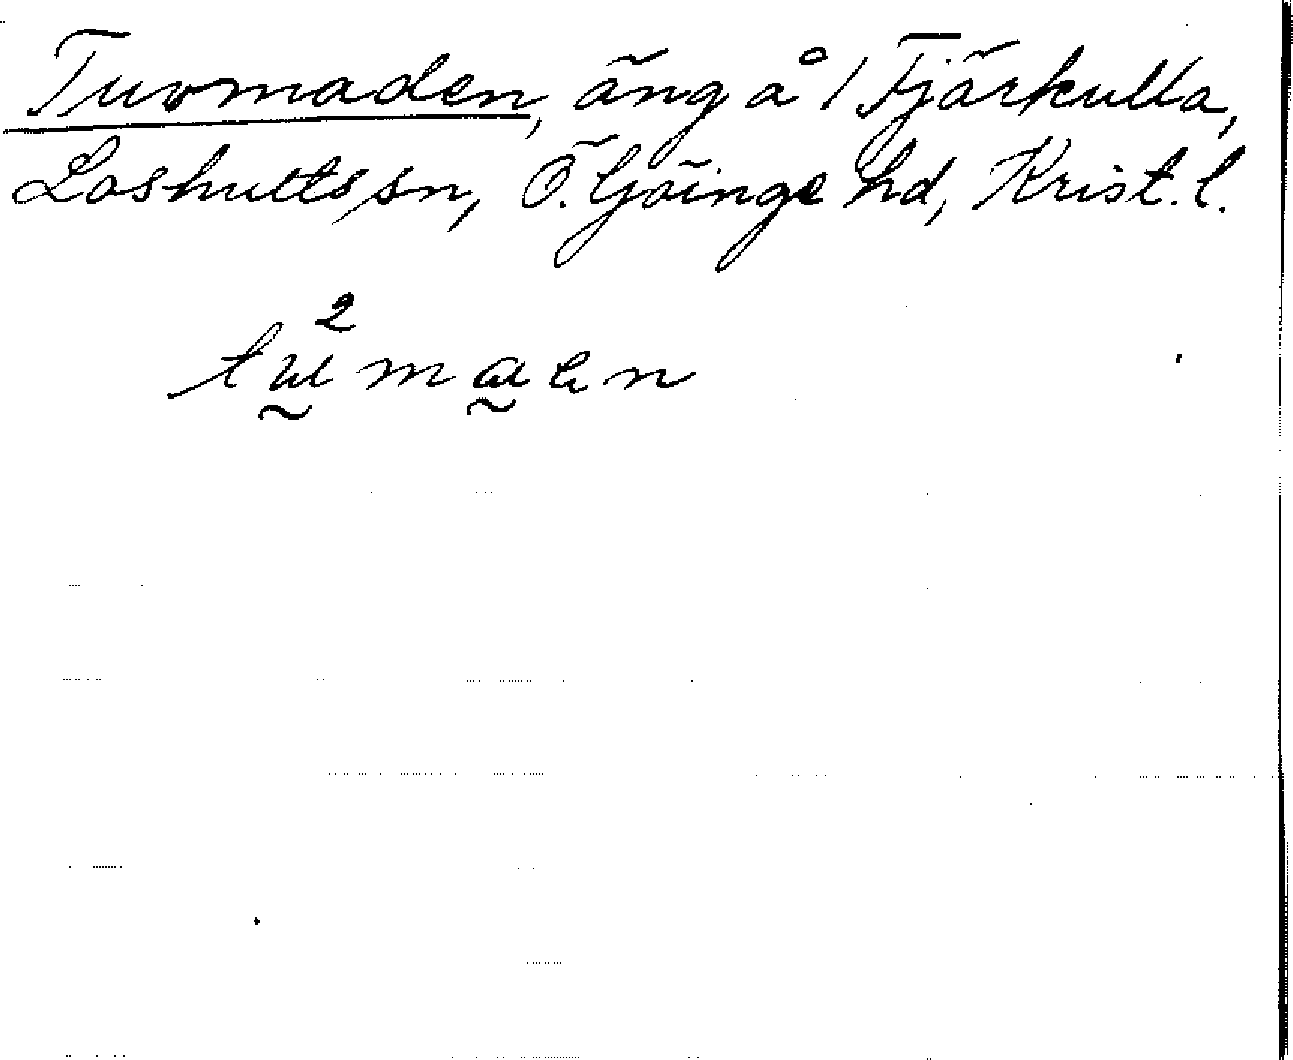 Tuvmaden, äng å 1 Fjärkulla,
Loshults sn, Ö. Göinge hd, Krist. l.